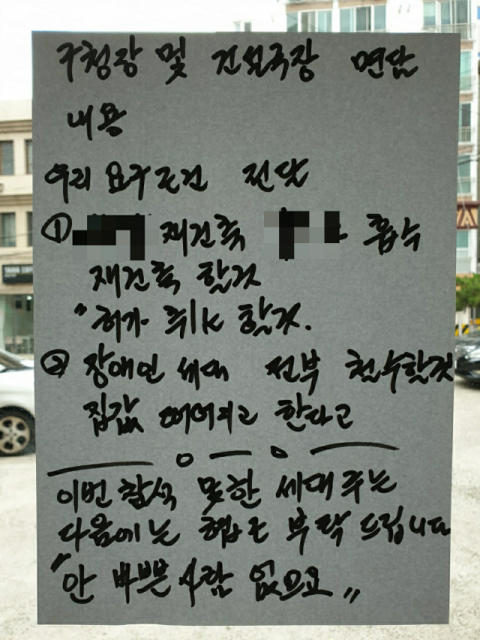 구청장 및 건설국장 면담
내용
우리 요구조건 전달
① 재건축 흡수
재건축 할것
"허가 취소 할것.
② 장애인 세대 전부 철수할것
집값 떨어지고 한다고
이번 참석 못한 세대주는
다음에는 협조 부탁드립니다
"안 바쁜 사람 없으요"